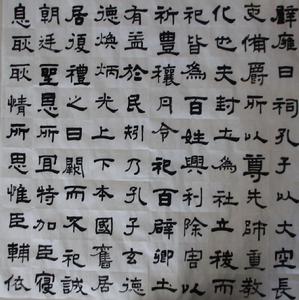 辟雍日祠孔子以大空長
吏備爵所以尊先師重教
化也夫封土為社立稷而
祀皆為百姓興利除害以
祈豐穰月令祀百辟卿士
有益於民矧乃孔子玄德
德煥炳光上下本國舊居
居復禮之日闕而不祀誠
朝廷聖恩所宜特加臣寢
息耿耿情所思惟臣輔依